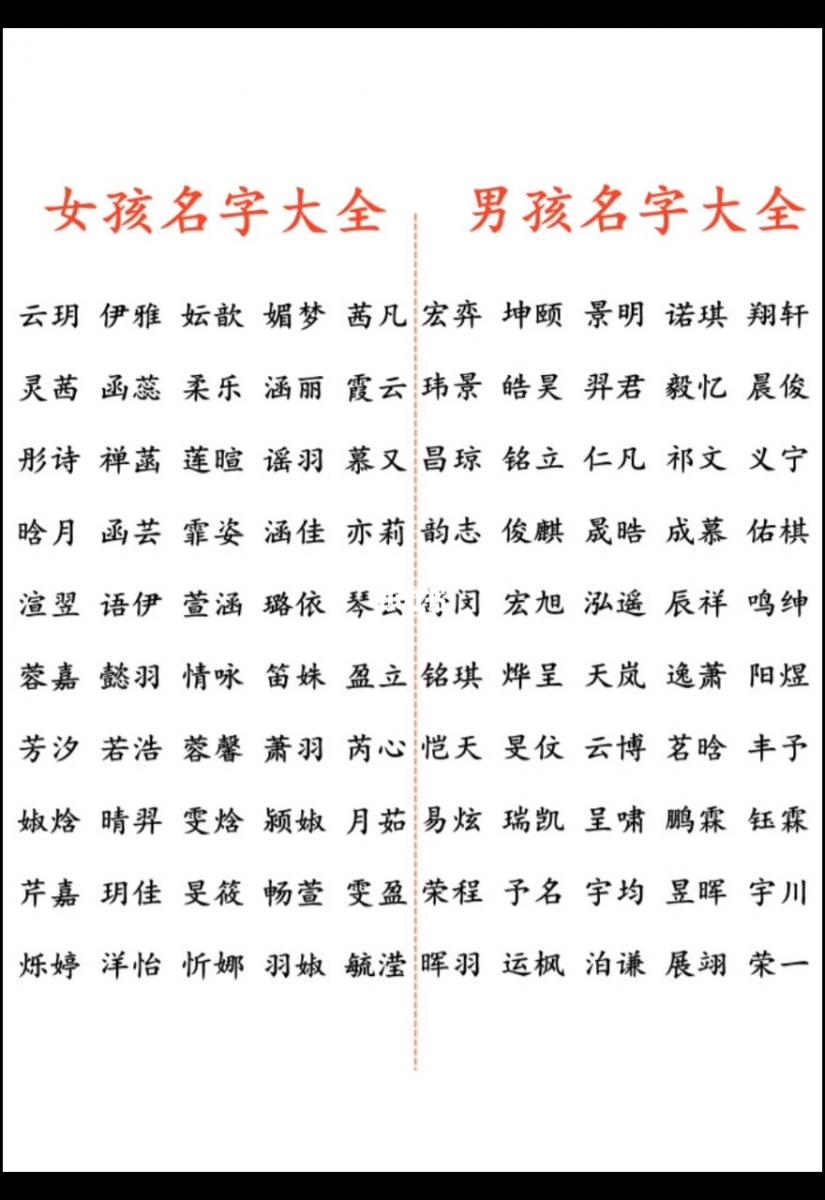 女孩名字大全
云玥 伊雅 妘歆 媚梦 茜凡
灵茜 函蕊 柔乐 涵丽 霞云
彤诗 禅菡 莲暄 谣羽 慕又
晗月 函芸 霏姿 涵佳 亦莉
渲翌 语伊 萱涵 璐依 琴
蓉嘉 懿羽 情咏 笛姝 盈立
芳汐 若浩 蓉馨 萧羽 芮心
婌焓 晴羿 雯焓 颍婌 月茹
芹嘉 玥佳 旻筱 畅萱 雯盈
烁婷 洋怡 忻娜 羽婌 毓滢
男孩名字大全
宏弈 坤颐 景明 诺琪 翔轩
玮景 皓昊 羿君 毅忆 晨俊
昌琼 铭立 仁凡 祁文 义宁
韵志 俊麒 晟晧 成慕 佑棋
闵 宏旭 泓遥 辰祥 鸣绅
铭琪 烨呈 天岚 逸萧 阳煜
恺天 旻伩 云博 茗晗 丰予
易炫 瑞凯 呈啸 鹏霖 钰霖
荣程 予名 宇均 昱晖 宇川
晖羽 运枫 泊谦 展翊 荣一